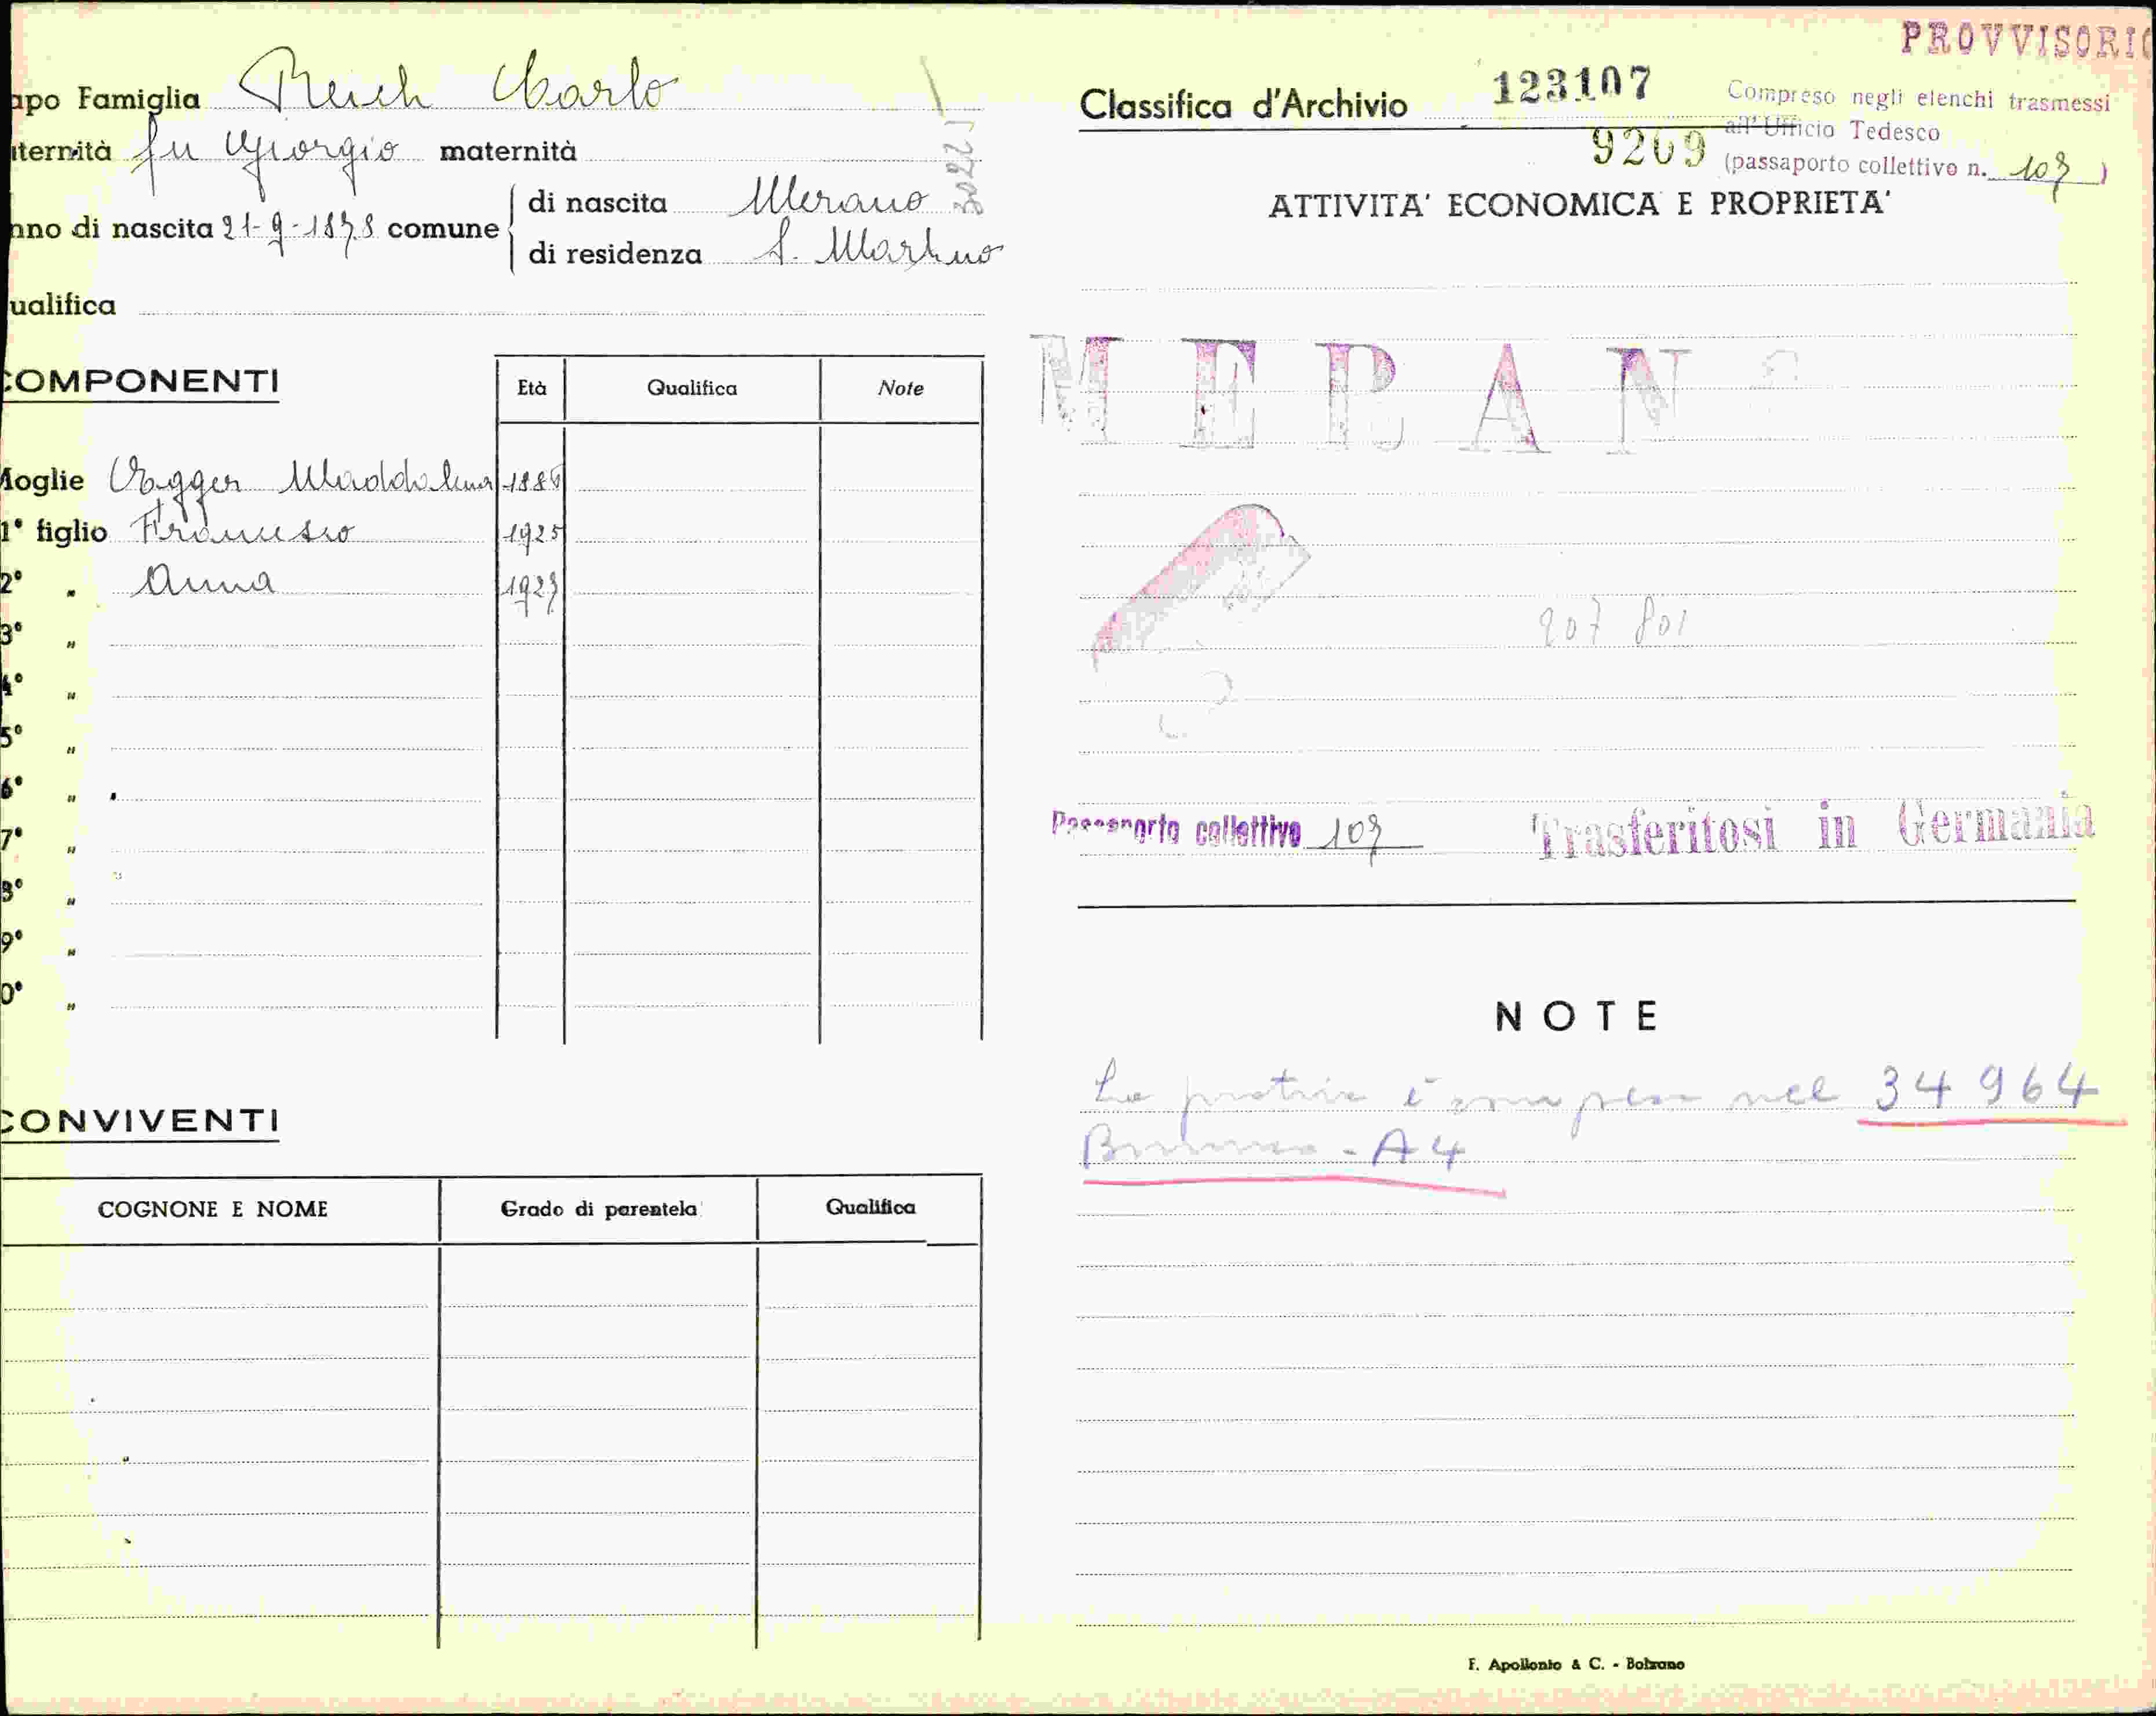 PROVVISORIO
apo Famiglia Reich Carlo
aternità fu Giorgio maternità
nno di nascita 21-9-1878 comune
di nascita Merano
di residenza S. Martino
ualifica
30221
COMPONENTI
Età Qualifica Note
Moglie Egger Maddalena 1886
1° figlio Francesco 1925
2° " Anna 1927
3° "
4° "
5° "
6° "
7° "
8° "
9° "
0° "
CONVIVENTI
COGNONE E NOME Grado di parentela Qualifica
Classifica d'Archivio 123107
9269
Compreso negli elenchi trasmessi
all' Ufficio Tedesco
(passaporto collettivo n. 107 )
ATTIVITA' ECONOMICA E PROPRIETA'
MERANO
207 801
Passaporto collettivo 107 Trasferitosi in Germania
NOTE
La pratica è compresa nel 34964
- A4
F. Apollonio & C. - Bolzano